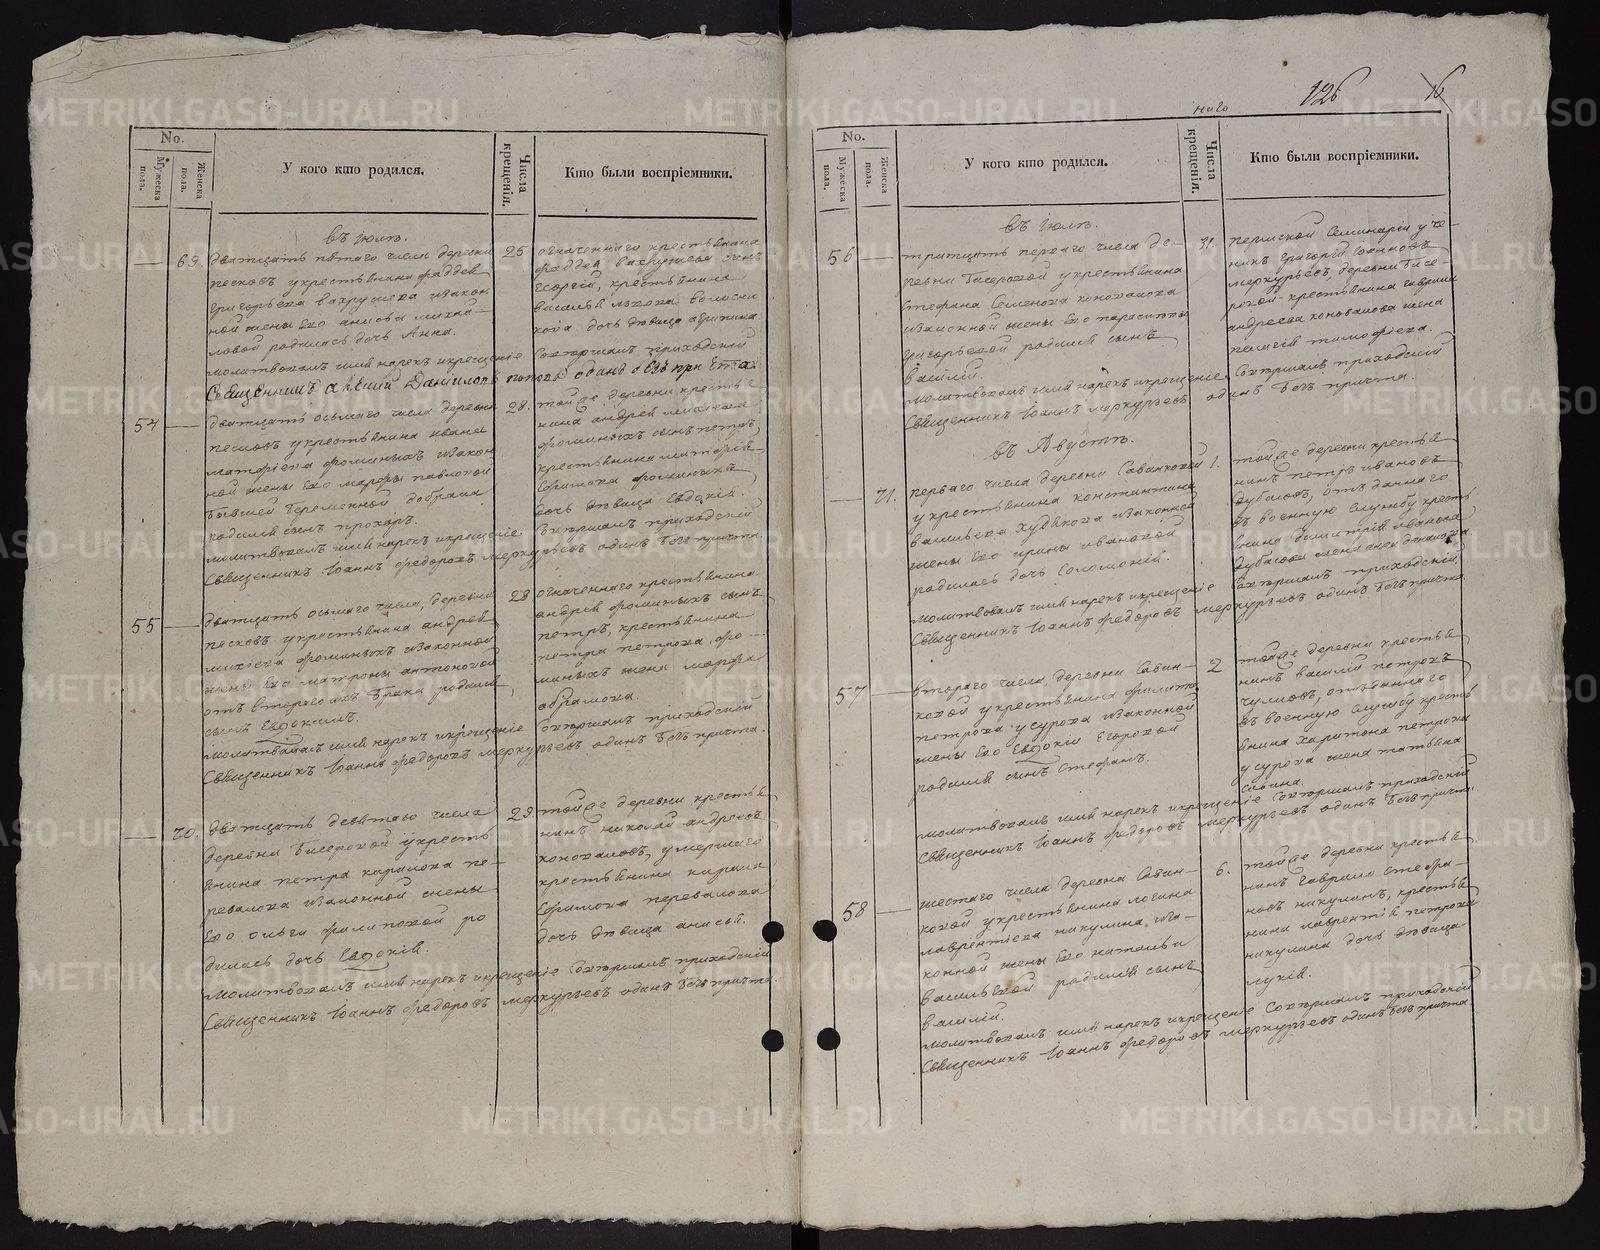 No.
Мужеска пола.
Женска пола.
У кого кто родился.
Числа крещенія.
Кто были воспріемники.
въ іюлѣ.
69.
дватцать пятаго числа деревни
песковъ у крестьянина фаддея
григорьева вахрушева изакон
ной жены его анисьи михай
ловой родилась дочь Анна.
25
означеннаго крестьянина
фаддея вахрушева сынъ
георгій, крестьянина
дочь дѣвица агрипина.
молитвовалъ имя нарекъ икрещеніе совершалъ приходскій
Священникъ алексій Даниловъ поповъ одинъ безъ причта.
54
дватцать осьмаго числа деревни
песковъ укрестьянина ивана
фоминыхъ изакон
ной жены его марфы павловой
бывшей беременной
родился сынъ прохоръ.
28.
тойже деревни крестья
нина андрея
фоминыхъ сынъ петръ,
крестьянина
ефимова фоминыхъ
дочь дѣвица Евдокія.
молитвовалъ имя нарекъ икрещеніе совершалъ приходскій
Священникъ Іоаннъ федоровъ меркурьевъ одинъ безъ причта.
55
дватцать осьмаго числа, деревни
песковъ укрестьянина андрея
фоминыхъ изаконной
жены его матроны антоновой
отъ втораго ихъ брака родился
сынъ Евдокимъ.
28
означеннаго крестьянина
андрея фоминыхъ сынъ
петръ, крестьянина
петра петрова фо
миныхъ жена марфа
абрамова.
молитвовалъ имя нарекъ икрещеніе совершалъ приходскій
Священникъ Іоаннъ федоровъ меркурьевъ одинъ безъ причта.
70.
дватцать девятаго числа
деревни бисеровой укресть
янина петра карпова пе
ревалова изаконной жены
его ольги филиповой ро
дилась дочь Евдокія.
29.
тойже деревни крестья
нинъ николай андреевъ
коноваловъ, умершаго
крестьянина кирила
ефимова перевалова
дочь дѣвица анисья.
молитвовалъ имя нарекъ икрещеніе совершалъ приходскій
Священникъ Іоаннъ федоровъ меркурьевъ одинъ безъ причта.
126
No.
Мужеска пола.
Женска пола.
У кого кто родился.
Числа крещенія.
Кто были воспріемники.
въ іюлѣ.
56
тритцать перваго числа де
ревни бисеровой укрестьянина
стефана семенова коновалова
изаконной жены его парасковьи
григорьевой родился сынъ
василій.
31.
пермской Семинаріи уче
никъ григорій Іоанновъ
меркурьевъ, деревни бисе
ровой крестьянина гаврила
андреева коновалова жена
пелагія тимофеева.
молитвовалъ имя нарекъ икрещеніе совершалъ приходскій
Священникъ Іоаннъ меркурьевъ одинъ безъ причта.
въ Августѣ.
71.
перваго числа деревни Савинковой
укрестьянина константина
васильева худякова изаконной
жены его ирины ивановой
родилась дочь Соломонія.
1.
тойже деревни крестья
нинъ петръ ивановъ
дубасовъ, отъданнаго
въ военную службу кресть
янина димитрія иванова
дубасова жена анна
молитвовалъ имя нарекъ икрещеніе совершалъ приходскій
Священникъ Іоаннъ федоровъ меркурьевъ одинъ безъ причта.
57
втораго числа, деревни Савин
ковой укрестьянина филипа
петрова усурова изаконной
жены его Евдокіи Егоровой
родился сынъ Стефанъ.
2
тойже деревни крестья
нинъ василій петровъ
чулковъ, отъданнаго
въ военную службу кресть
янина харитона петрова
усурова жена татьяна
савина.
молитвовалъ имя нарекъ икрещеніе совершалъ приходскій
Священникъ Іоаннъ федоровъ меркурьевъ одинъ безъ причта.
58
шестаго числа деревни Савин
ковой укрестьянина логина
лаврентьева никулина иза
конной жены его натальи
васильевой родился сынъ
василій.
6.
тойже деревни крестья
нинъ гаврило стефа
новъ никулинъ, крестья
нина лаврентія петрова
никулина дочь дѣвица
лукія.
молитвовалъ имя нарекъ икрещеніе совершалъ приходскій
Священникъ Іоаннъ федоровъ меркурьевъ одинъ безъ причта
METRIKI.GASO-URAL.RU